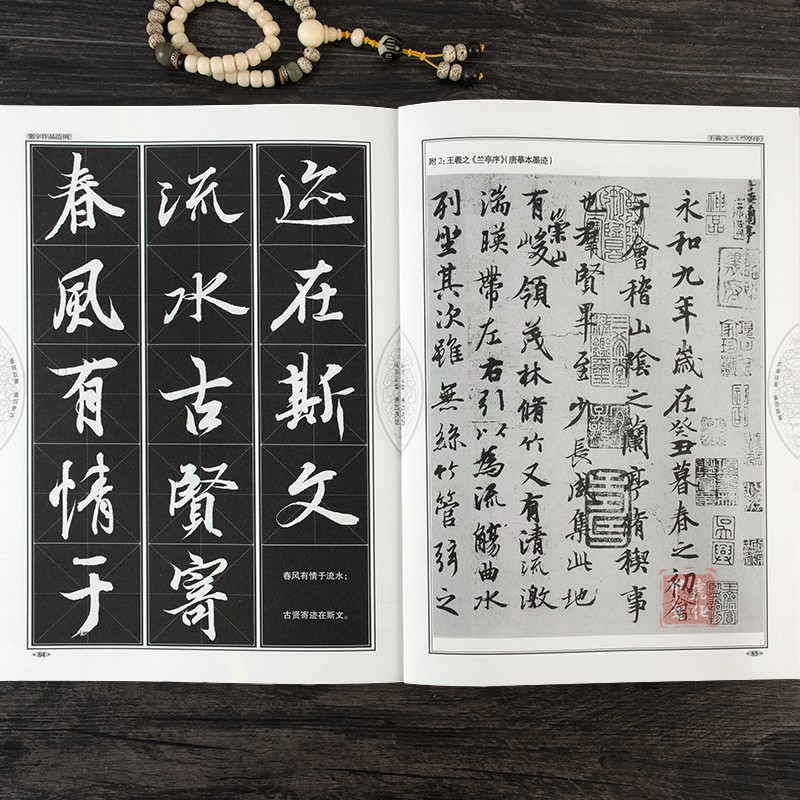 集字作品范例
春風有情于
流水古賢寄
迹在斯文
春风有情于流水；
古贤寄迹在斯文。
84
王羲之·《兰亭序》
附2：王羲之《兰亭序》(唐摹本墨迹)
永和九年歲在癸丑暮春之初會
于會稽山陰之蘭亭脩稧事
也羣賢畢至少長咸集此地
有崇山峻領茂林脩竹又有清流激
湍暎帶左右引以為流觴曲水
列坐其次雖無絲竹管弦之
85